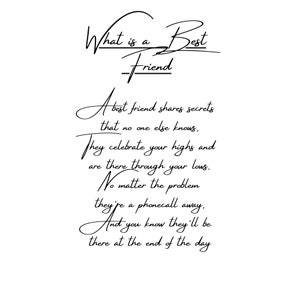 What is a Best
Friend
A best friend shares secrets
that no one else knows,
They celebrate your highs and
are there through your lows.
No matter the problem
they're a phonecall away,
And you know they'll be
there at the end of the day